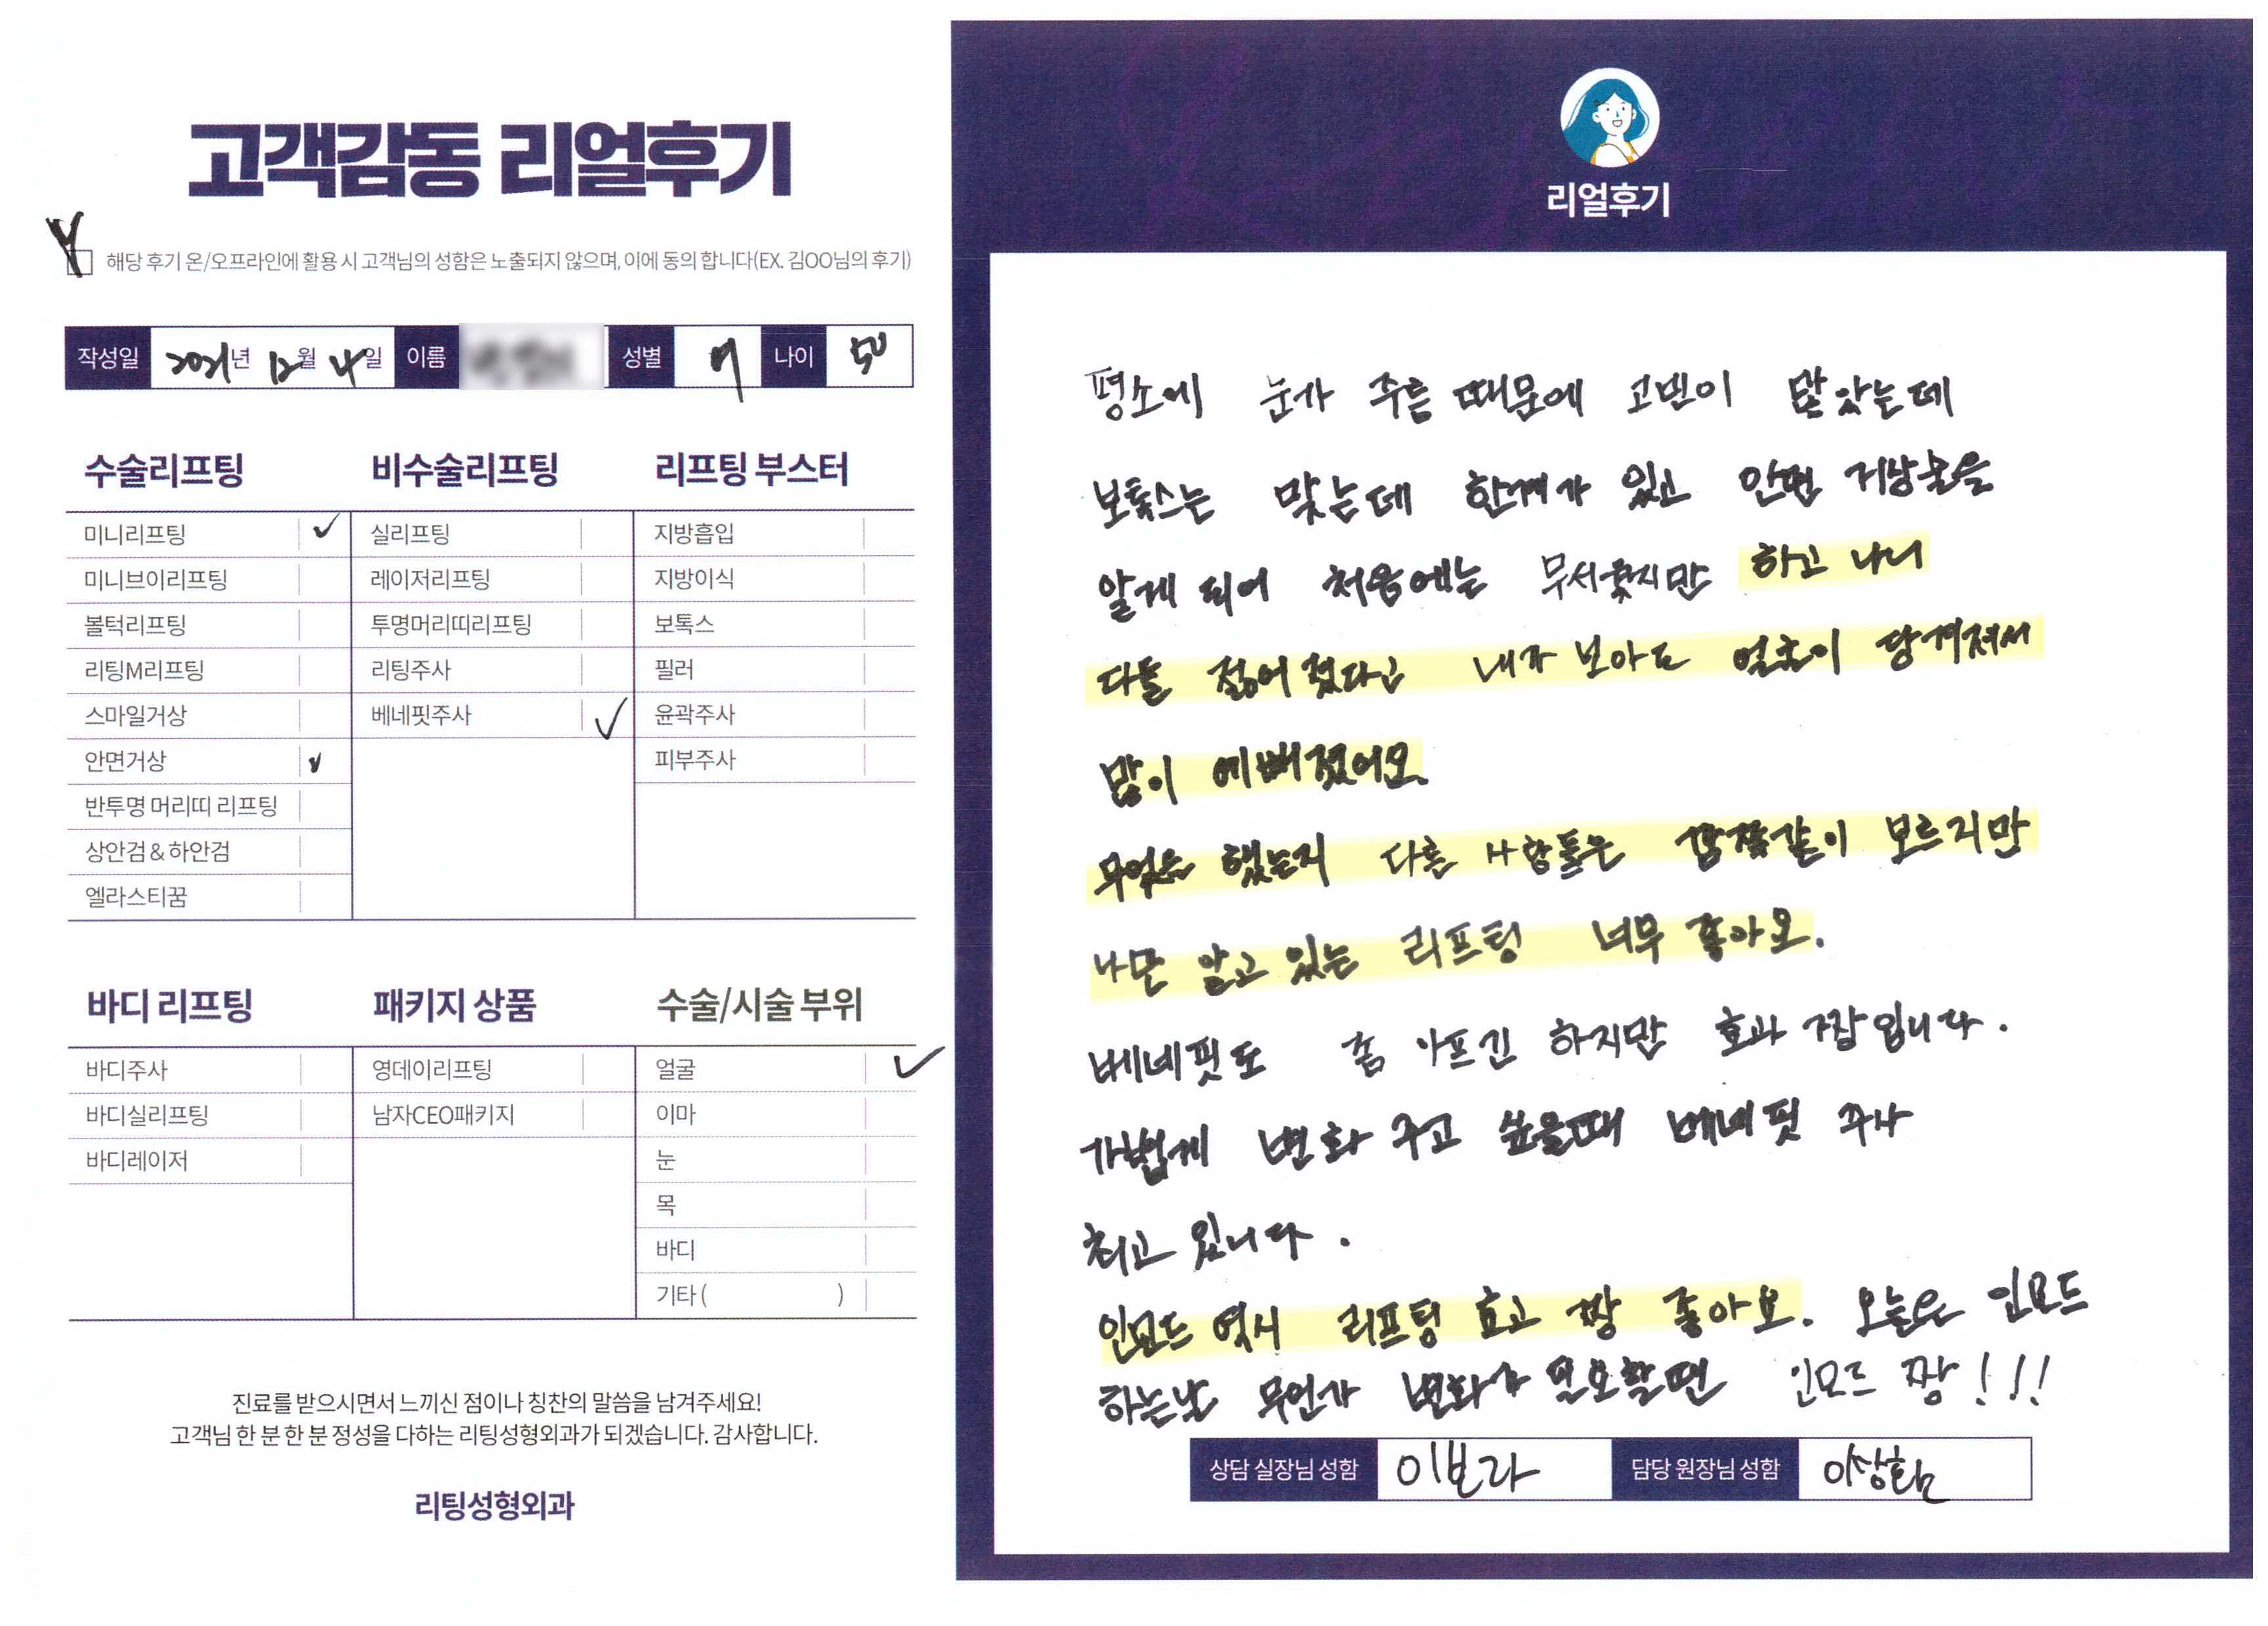 고객감동 리얼후기
해당 후기 온/오프라인에 활용 시 고객님의 성함은 노출되지 않으며, 이에 동의 합니다(EX. 김OO님의 후기)
작성일 2021년 12월 4일 이름 성별 여 나이 50
수술리프팅
미니리프팅
미니브이리프팅
볼턱리프팅
리팅M리프팅
스마일거상
안면거상
반투명 머리띠 리프팅
상안검 & 하안검
엘라스티꿈
비수술리프팅
실리프팅
레이저리프팅
투명머리띠리프팅
리팅주사
베네핏주사
리프팅 부스터
지방흡입
지방이식
보톡스
필러
윤곽주사
피부주사
바디 리프팅
바디주사
바디실리프팅
바디레이저
패키지 상품
영데이리프팅
남자CEO패키지
수술/시술 부위
얼굴
이마
눈
목
바디
기타 ( )
진료를 받으시면서 느끼신 점이나 칭찬의 말씀을 남겨주세요!
고객님 한 분 한 분 정성을 다하는 리팅성형외과가 되겠습니다. 감사합니다.
리팅성형외과
리얼후기
평소에 눈가 주름 때문에 고민이 많았는데
보톡스는 맞는데 한계가 있고 안면 거상술을
알게 되어 처음에는 무서웠지만 하고 나니
다들 젊어졌다고 내가 보아도 얼굴이 당겨져서
많이 예뻐졌어요.
무엇을 했는지 다른 사람들은 감쪽같이 모르지만
나만 알고 있는 리프팅 너무 좋아요.
베네핏도 좀 아프긴 하지만 효과 짱입니다.
가볍게 변화 주고 싶을때 베네핏 주사
최고 입니다.
인모드 역시 리프팅 효고 짱 좋아요. 오늘은 인모드
하는날 무언가 변화가 필요할땐 인모드 짱!!!
상담 실장님 성함 이보라 담당 원장님 성함